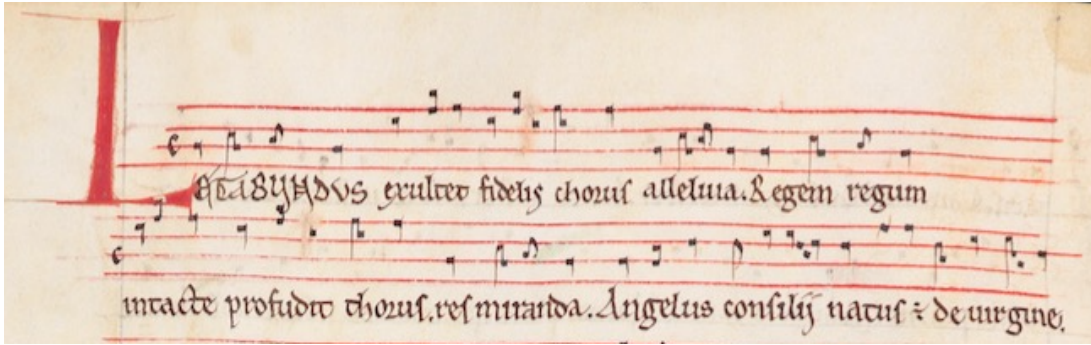 LÆTABUNDVS exultet fidelis chorus alleluia. Regem regum
intacte profudit thorus. res miranda. Angelus consilij natus ÷ de uirgine.